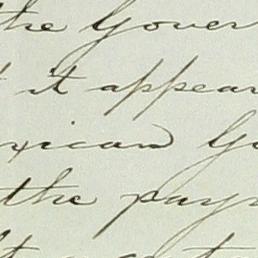 the Gover
it appear
xican Go
the pay